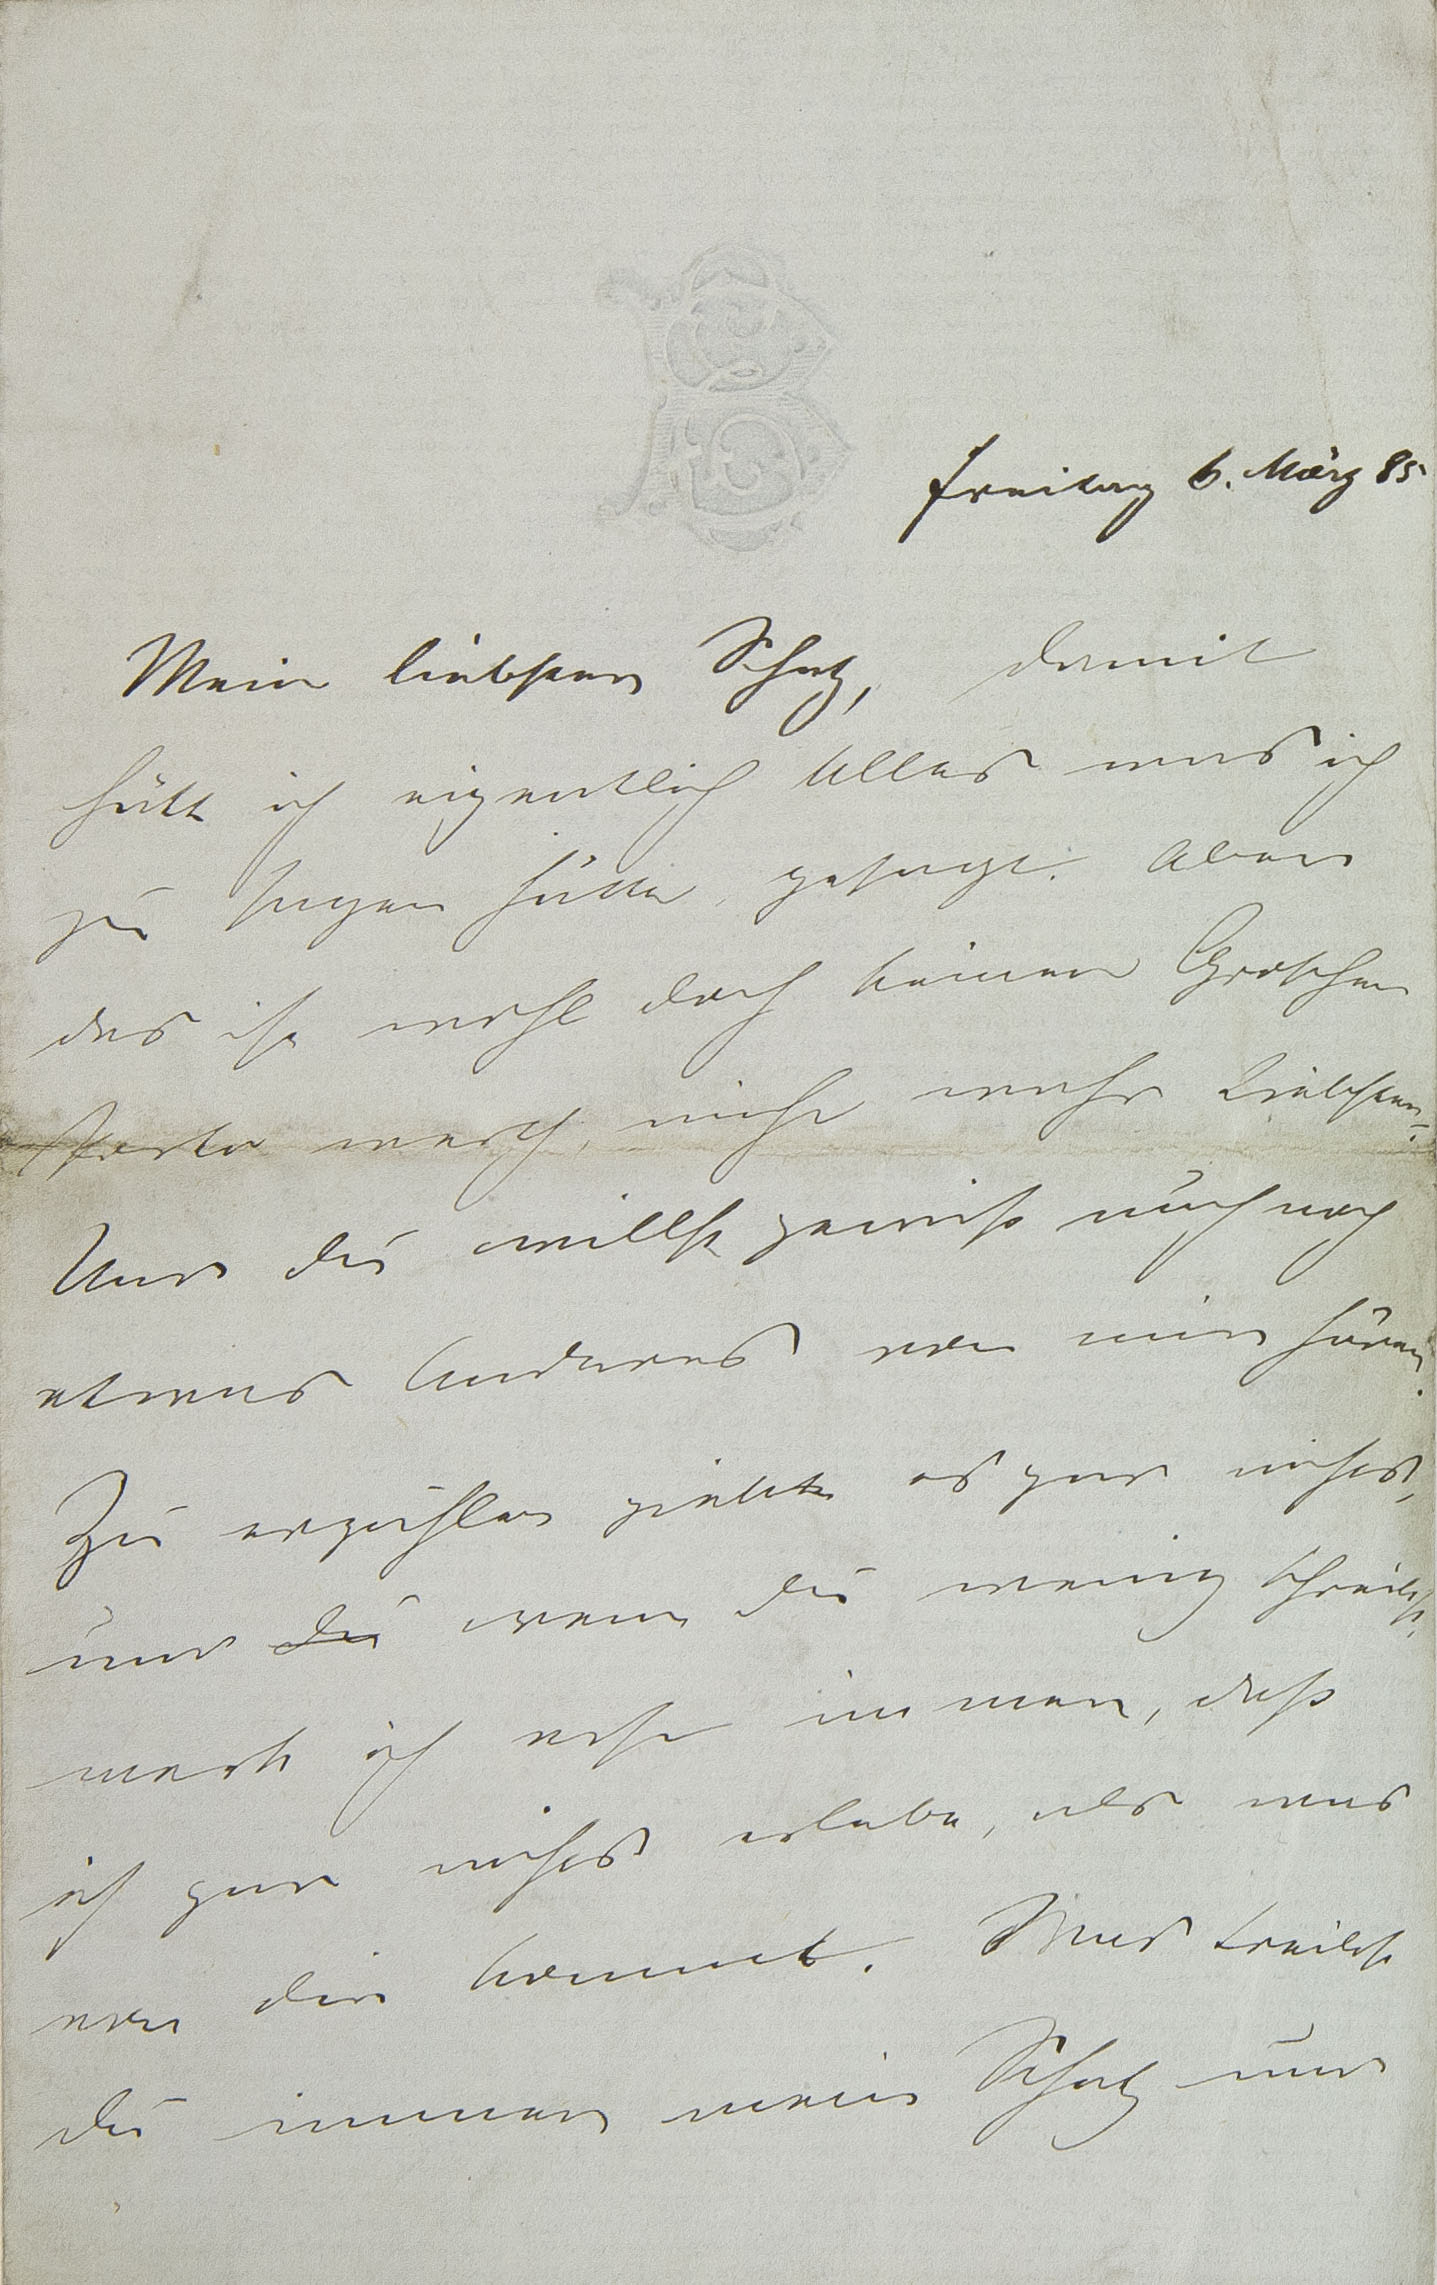 Freitag 6. März 85
Mein liebster Schatz, damit
hätt ich eigentlich Alles was ich
zu sagen hätte, gesagt. Aber
das ist wohl doch keinen Groschen
Porto werth, nicht wahr Liebster?
Und du willst gewiß auch noch
etwas Anderes von mir hören.
Zu erzählen giebts es gar nichts,
und du wenn du wenig schreibst,
merk ich erst immer, daß
ich gar nichts erlebe, als was
von dir kommt. Was treibst
du immer mein Schatz und